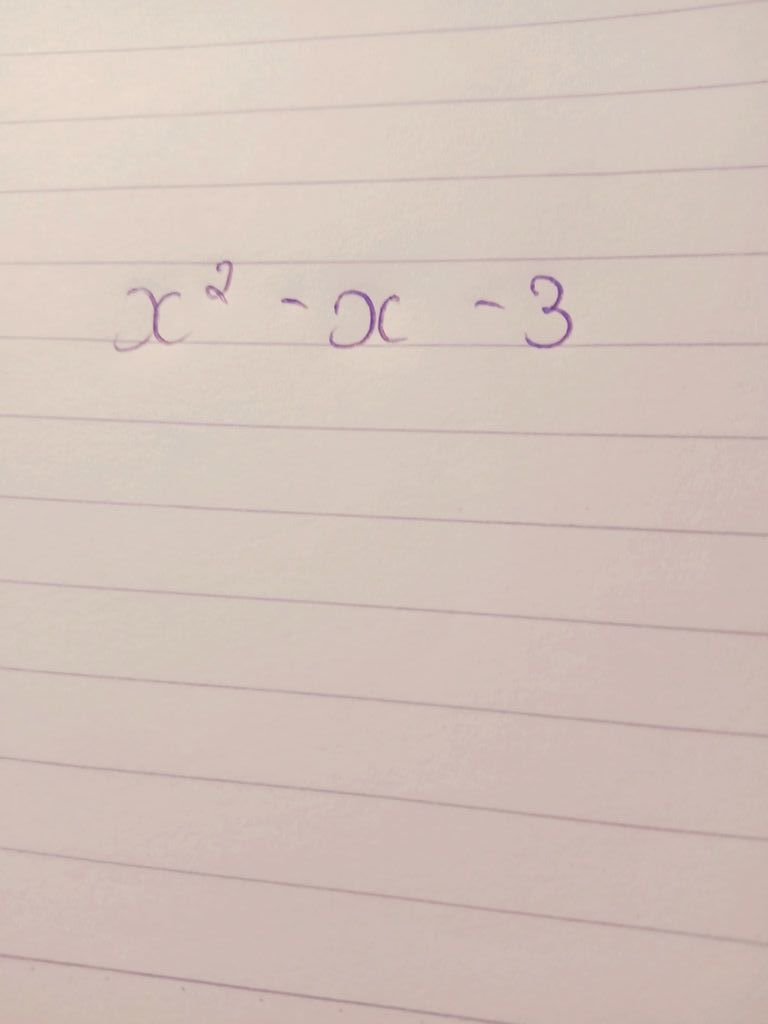 x² - x - 3